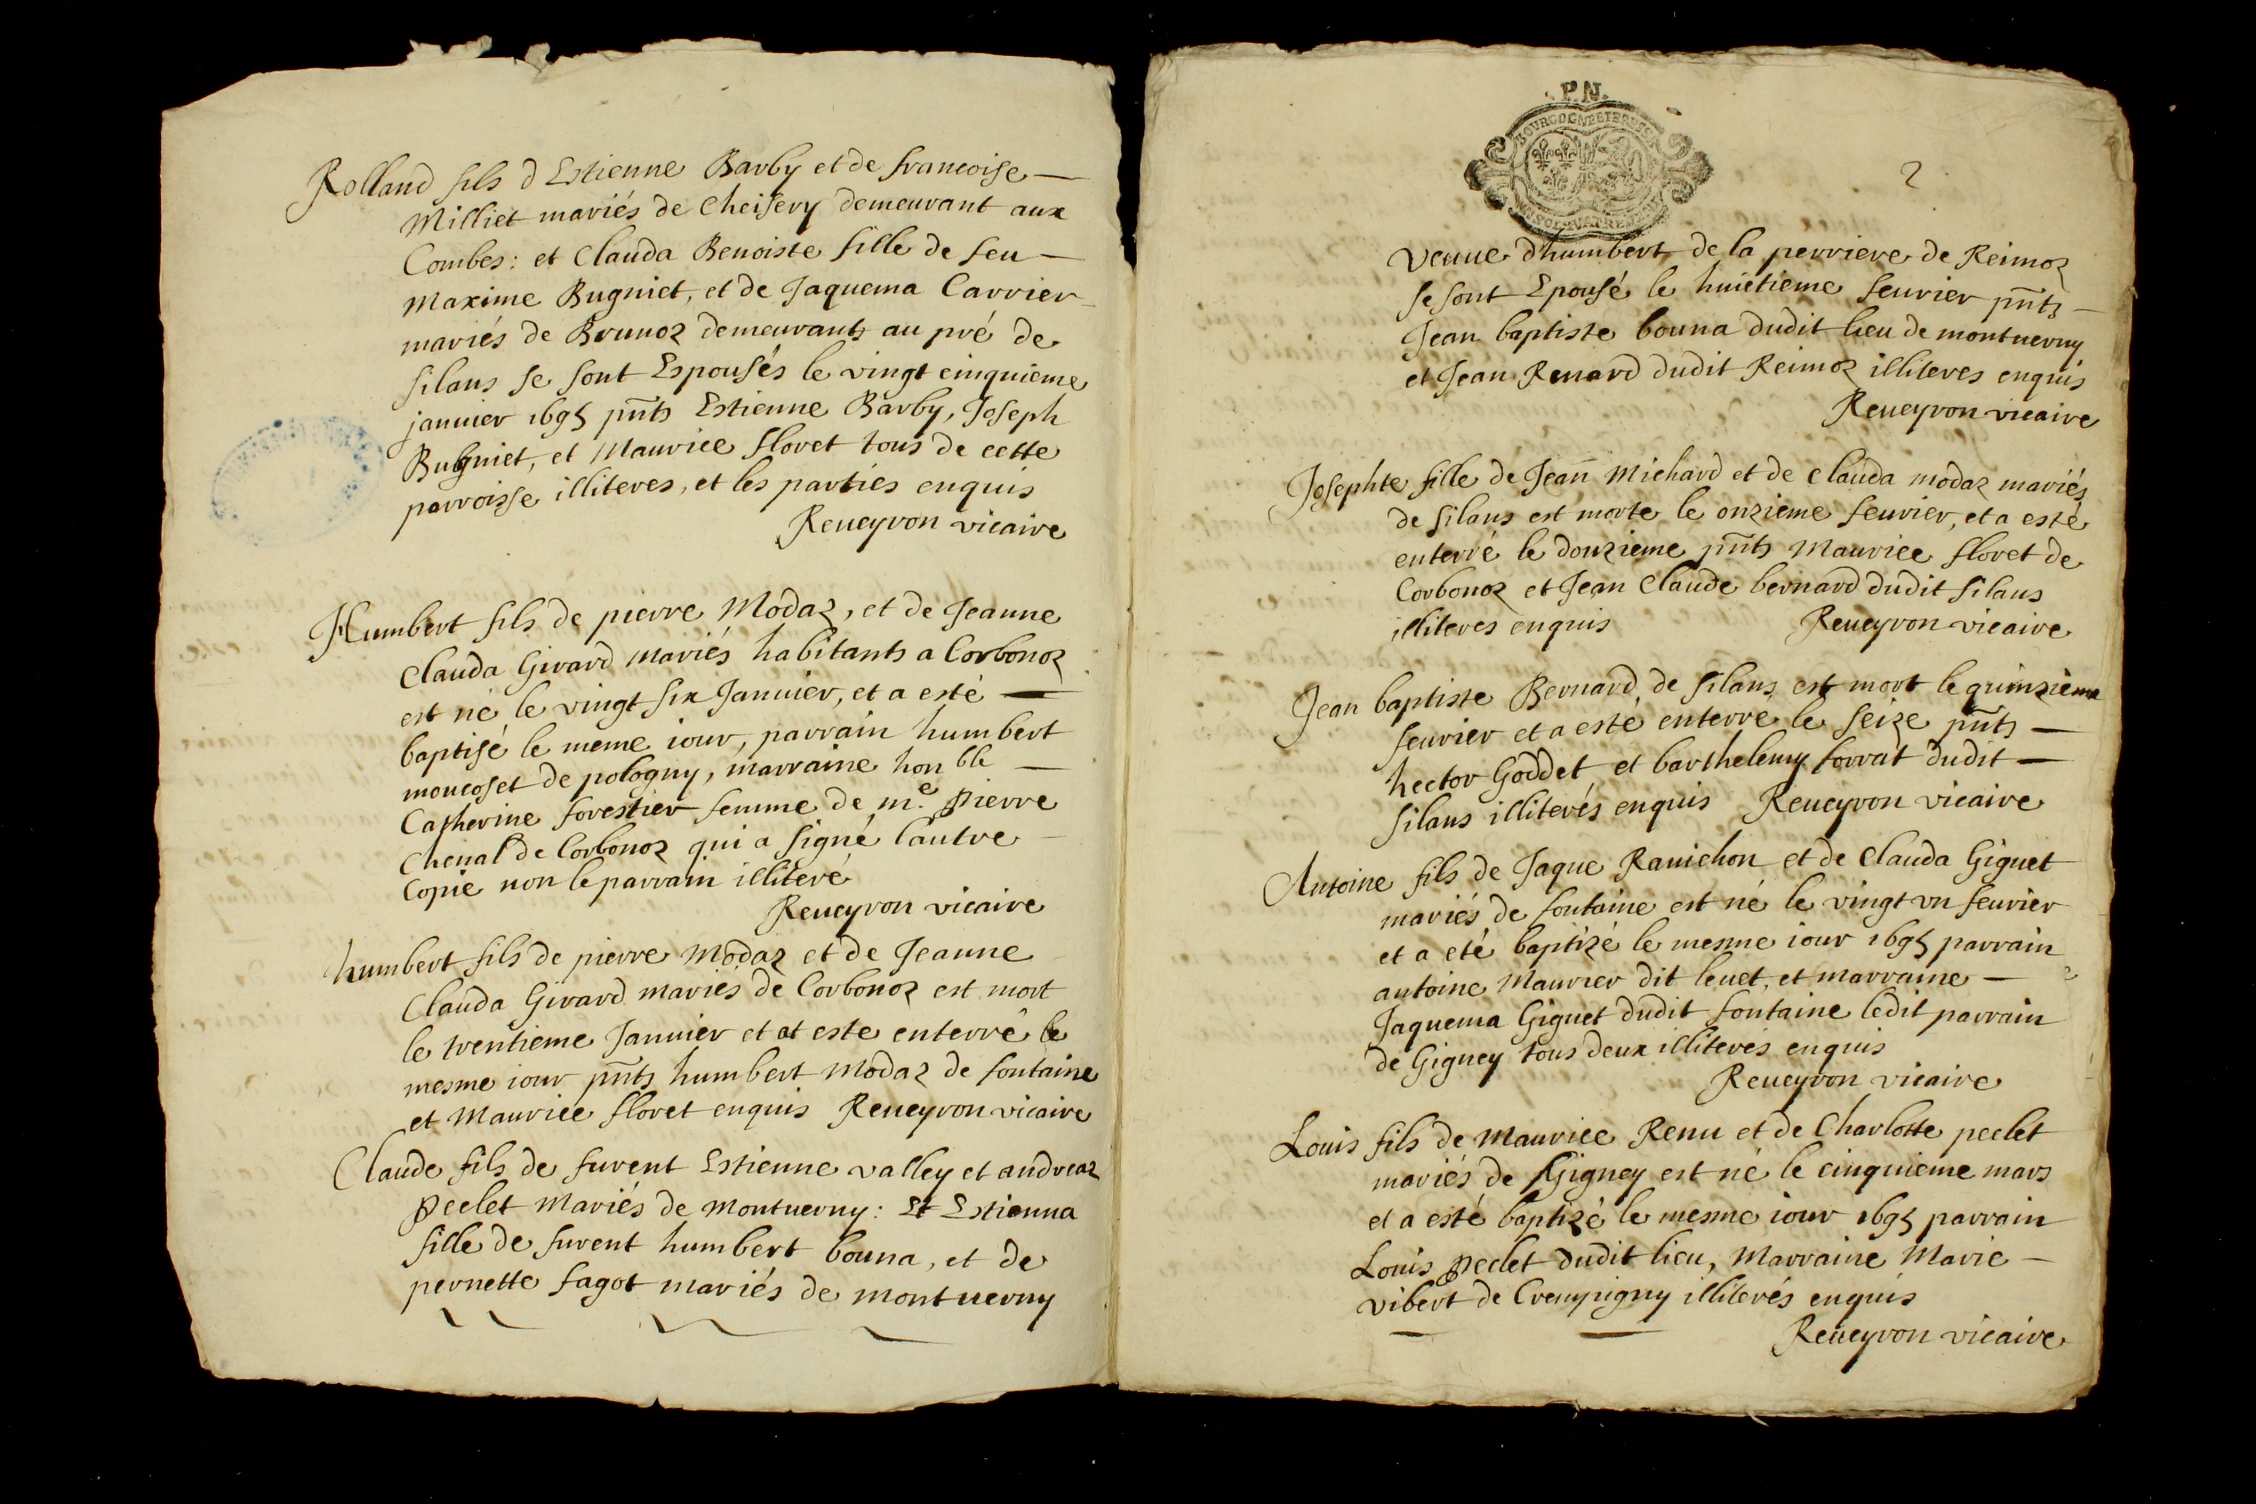 Rolland fils d Estienne Barby et de francoise
Milliet mariés de Cheisery demeurant aux
Combes: et Clauda Benoiste fille de feu
Maxime Bugniet, et de Jaquema Carrier
mariés de Brunoz demeurants au pré de
silans se sont Espousés le vingt cinquieme
januier 1695 pnts Estienne Barby, Joseph
Bugniet, et Maurice floret tous de cette
parroisse illiteres, et les parties enquis
Reueyron vicaire
Humbert fils de pierre Modaz, et de Jeanne
Clauda Girard mariés habitants a Corbonoz
est né le vingt six Januier, et a esté
baptisé le meme iour, parrain humbert
moucoset de pologny, marraine hon ble
Catherine forestier femme de me. pierre
Chenal de Corbonoz qui a signé lautre
Copie non le parrain illiteré
Reueyron vicaire
humbert fils de pierre Modaz et de Jeanne
Clauda Girard mariés de Corbonoz est mort
le trentieme Januier et at este enterré le
mesme iour pnts humbert Modaz de fontaine
et Maurice floret enquis Reueyron vicaire
Claude fils de furent Estienne valley et andreaz
peclet mariés de Montuerny: Et Estienna
fille de furent humbert bouna, et de
pernette fagot mariés de montuerny
P.N.
2
veuue d'humbert de la perriere de Reimoz
se sont Epousé le huietieme feurier pnts
Jean baptiste bouna dudit lieu de montuerny
et Jean Renard dudit Reimoz illiteres enquis
Reueyron vicaire
Josephte fille de Jean Michard et de Clauda modaz mariés
de silans est morte le onzieme feurier, et a esté
enterré le douzieme pnts Maurice floret de
Corbonoz et Jean Claude bernard dudit silans
illiteres enquis Reueyron vicaire
Jean baptiste Bernard de silans est mort le quinzieme
feurier et a esté enterre le seize pnts
hector Goddet et barthelemy forrat dudit
silans illiterés enquis Reueyron vicaire
Antoine fils de Jaque Rauichon et de Clauda Giguet
mariés de fontaine est né le vingt vn feurier
et a eté baptizé le mesme iour 1695 parrain
antoine Maurier dit leuet, et marraine
Jaquema Giguet dudit fontaine ledit parrain
de Gigney tous deux illiterés enquis
Reueyron vicaire
Louis fils de Maurice Renu et de Charlotte peclet
mariés de Gigney est né le cinquieme mars
et a esté baptizé le mesme iour 1695 parrain
Louis peclet dudit lieu, Marraine Marie
vibert de Crempigny illiterés enquis
Reueyron vicaire